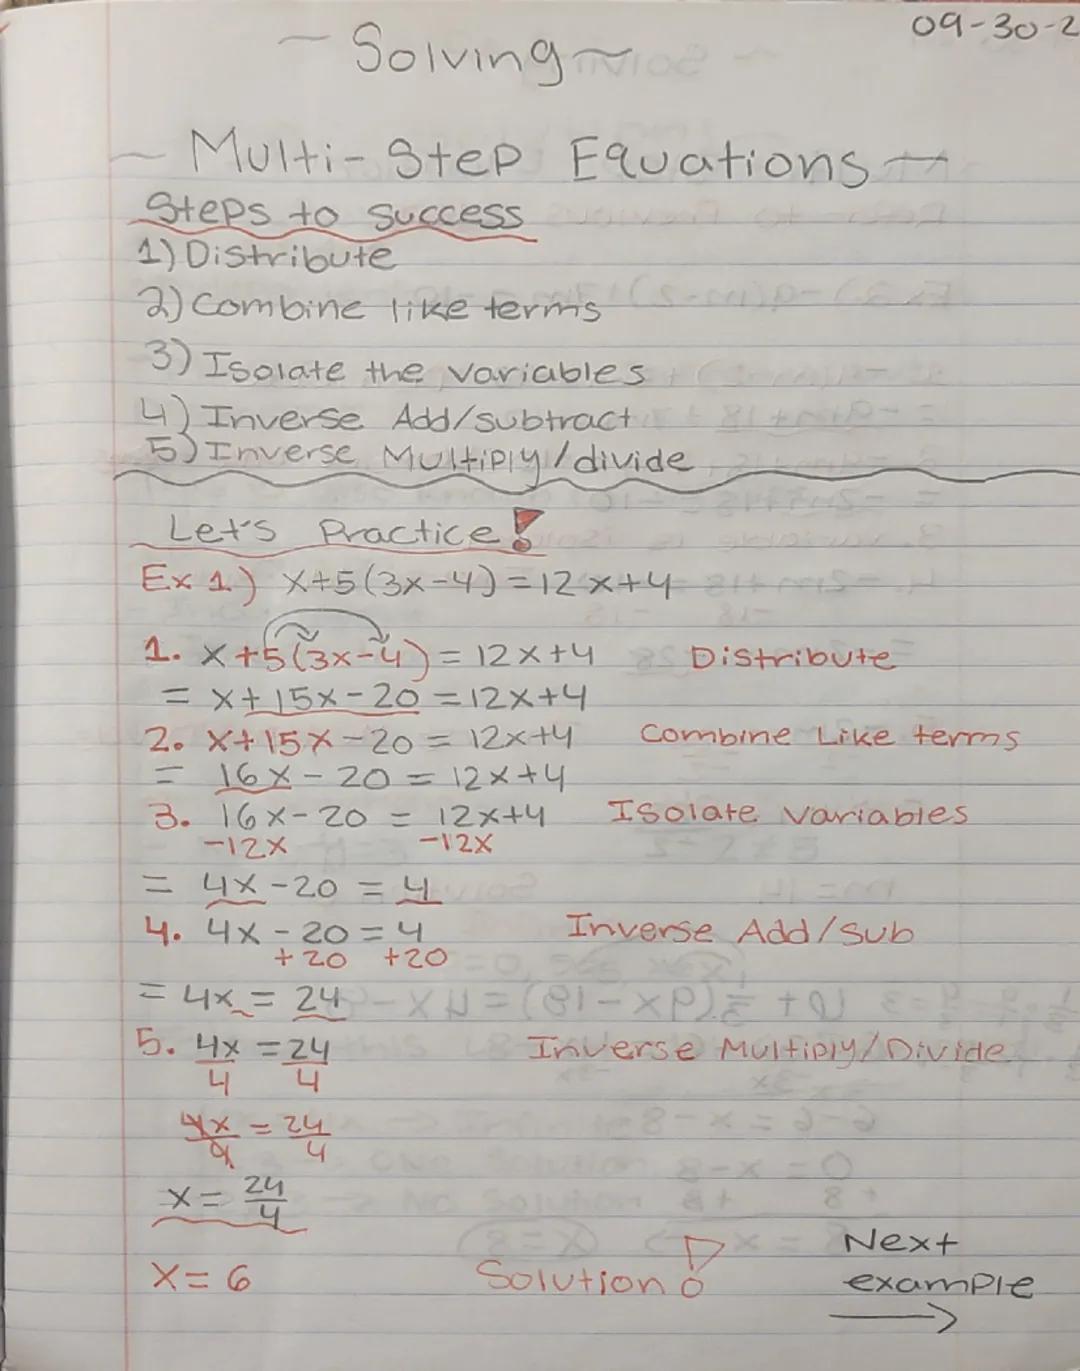 09-30-2
~ Solving ~
~ Multi-Step Equations ~
Steps to success
1) Distribute
2) Combine like terms
3) Isolate the variables
4) Inverse Add/subtract
5) Inverse Multiply/divide
Let's Practice!
Ex 1.) x+5(3x-4)=12x+4
1. x+5(3x-4)=12x+4 Distribute
= x+15x-20=12x+4
2. x+15x-20=12x+4 Combine Like terms
= 16x-20=12x+4
3. 16x-20 = 12x+4 Isolate variables
-12x -12x
= 4x-20 = 4
4. 4x-20=4 Inverse Add/Sub
+20 +20
= 4x = 24
5. 4x = 24 Inverse Multiply/Divide
4 4
4x = 24
4 4
x = 24
4
x = 6 Solution!
Next
example
→